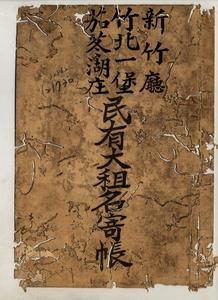 新竹廳
竹北一堡
茄苳湖庄
民有大租名寄帳